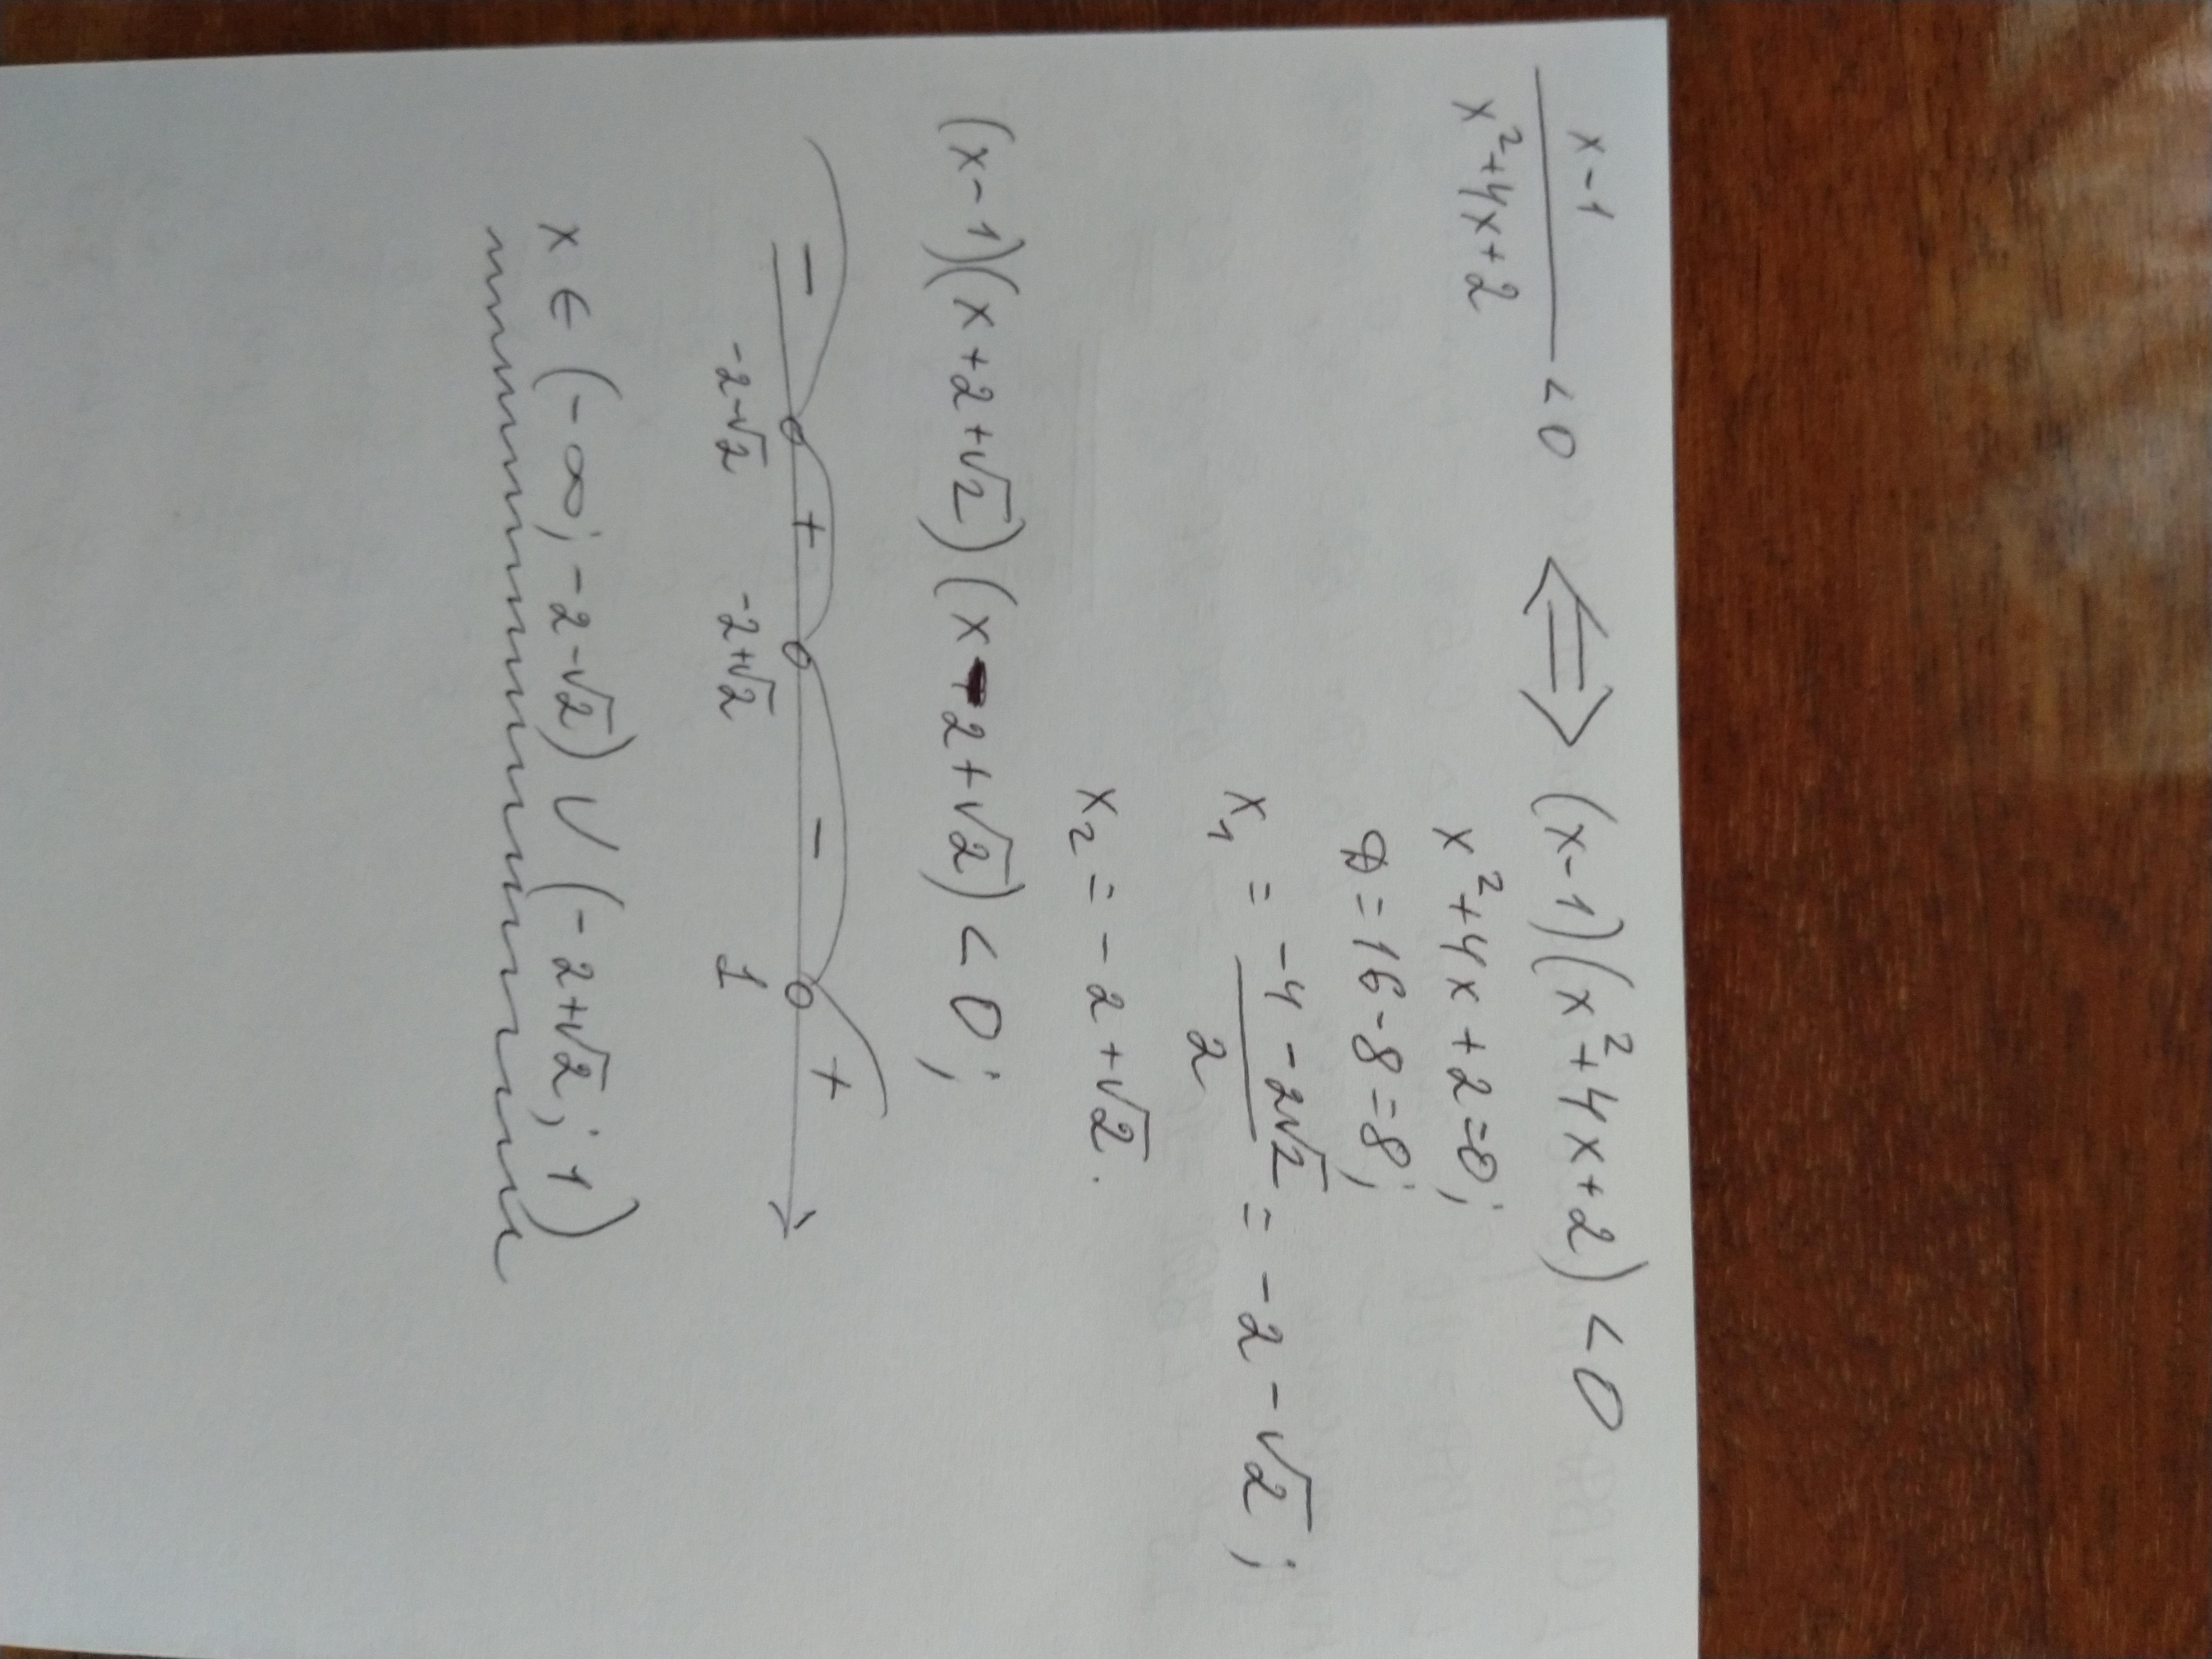 x-1
x²+4x+2
< 0 ⟺ (x-1)(x²+4x+2) < 0
x²+4x+2=0;
D=16-8=8;
x₁ = (-4-2√2)/2 = -2-√2;
x₂ = -2+√2.
(x-1)(x+2+√2)(x-2+√2) < 0;
- + - +
-2-√2 -2+√2 1
x ∈ (-∞; -2-√2) ∪ (-2+√2; 1)